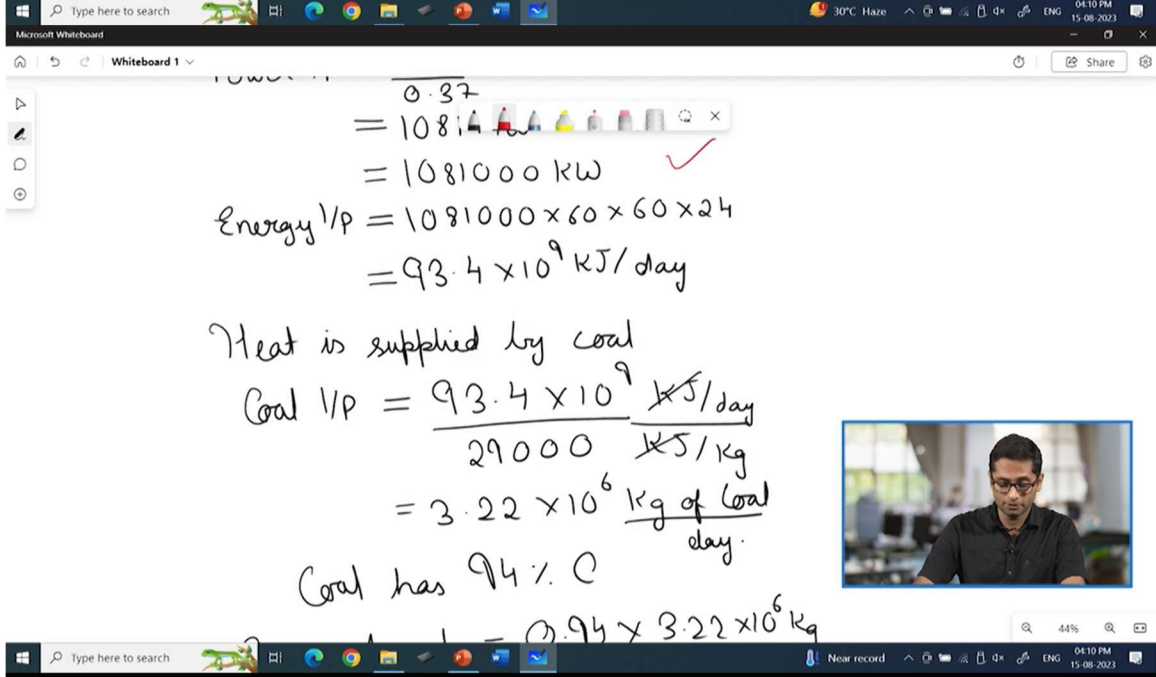 Type here to search
30°C Haze
ENG
04:10 PM
15-08-2023
Microsoft Whiteboard
Whiteboard 1
Share
0.37
= 1081
= 1081000 KW
Energy I/P = 1081000 × 60 × 60 × 24
= 93.4 × 10⁹ KJ/day
Heat is supplied by coal
Coal I/P = 93.4 × 10⁹ KJ/day
29000 KJ/kg
= 3.22 × 10⁶ kg of Coal
day.
Coal has 94 % C
= 0.94 × 3.22 × 10⁶ kg
44%
Type here to search
Near record
ENG
04:10 PM
15-08-2023